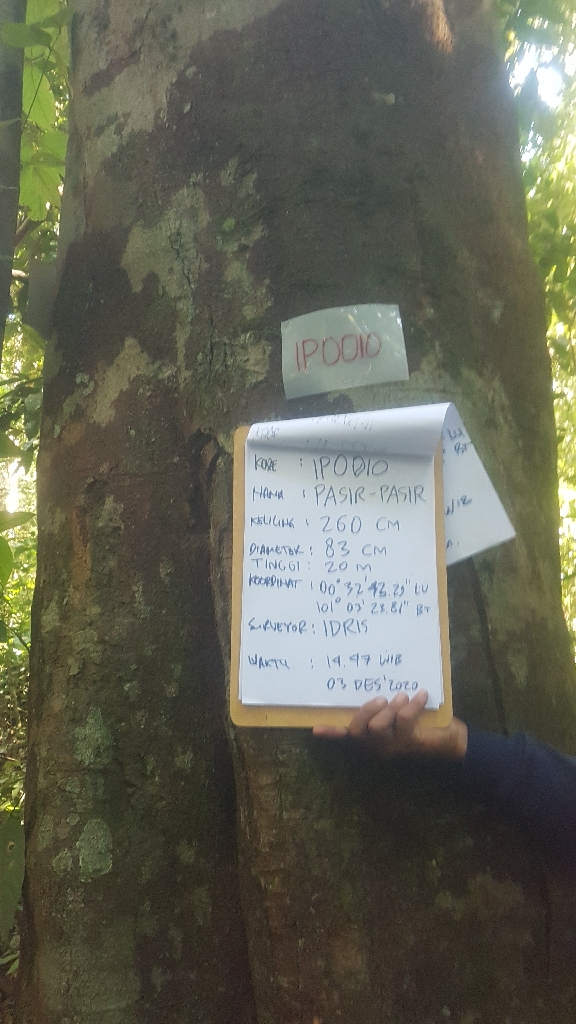 IP0010
KODE : IP0010
NAMA : PASIR-PASIR
KELILING : 260 CM
DIAMETER : 83 CM
TINGGI : 20 M
KOORDINAT : 00° 32' 43.29" LU
101° 03' 23.81" BT
SURVEYOR : IDRIS
WAKTU : 14.47 WIB
03 DES'2020
BT
WIB